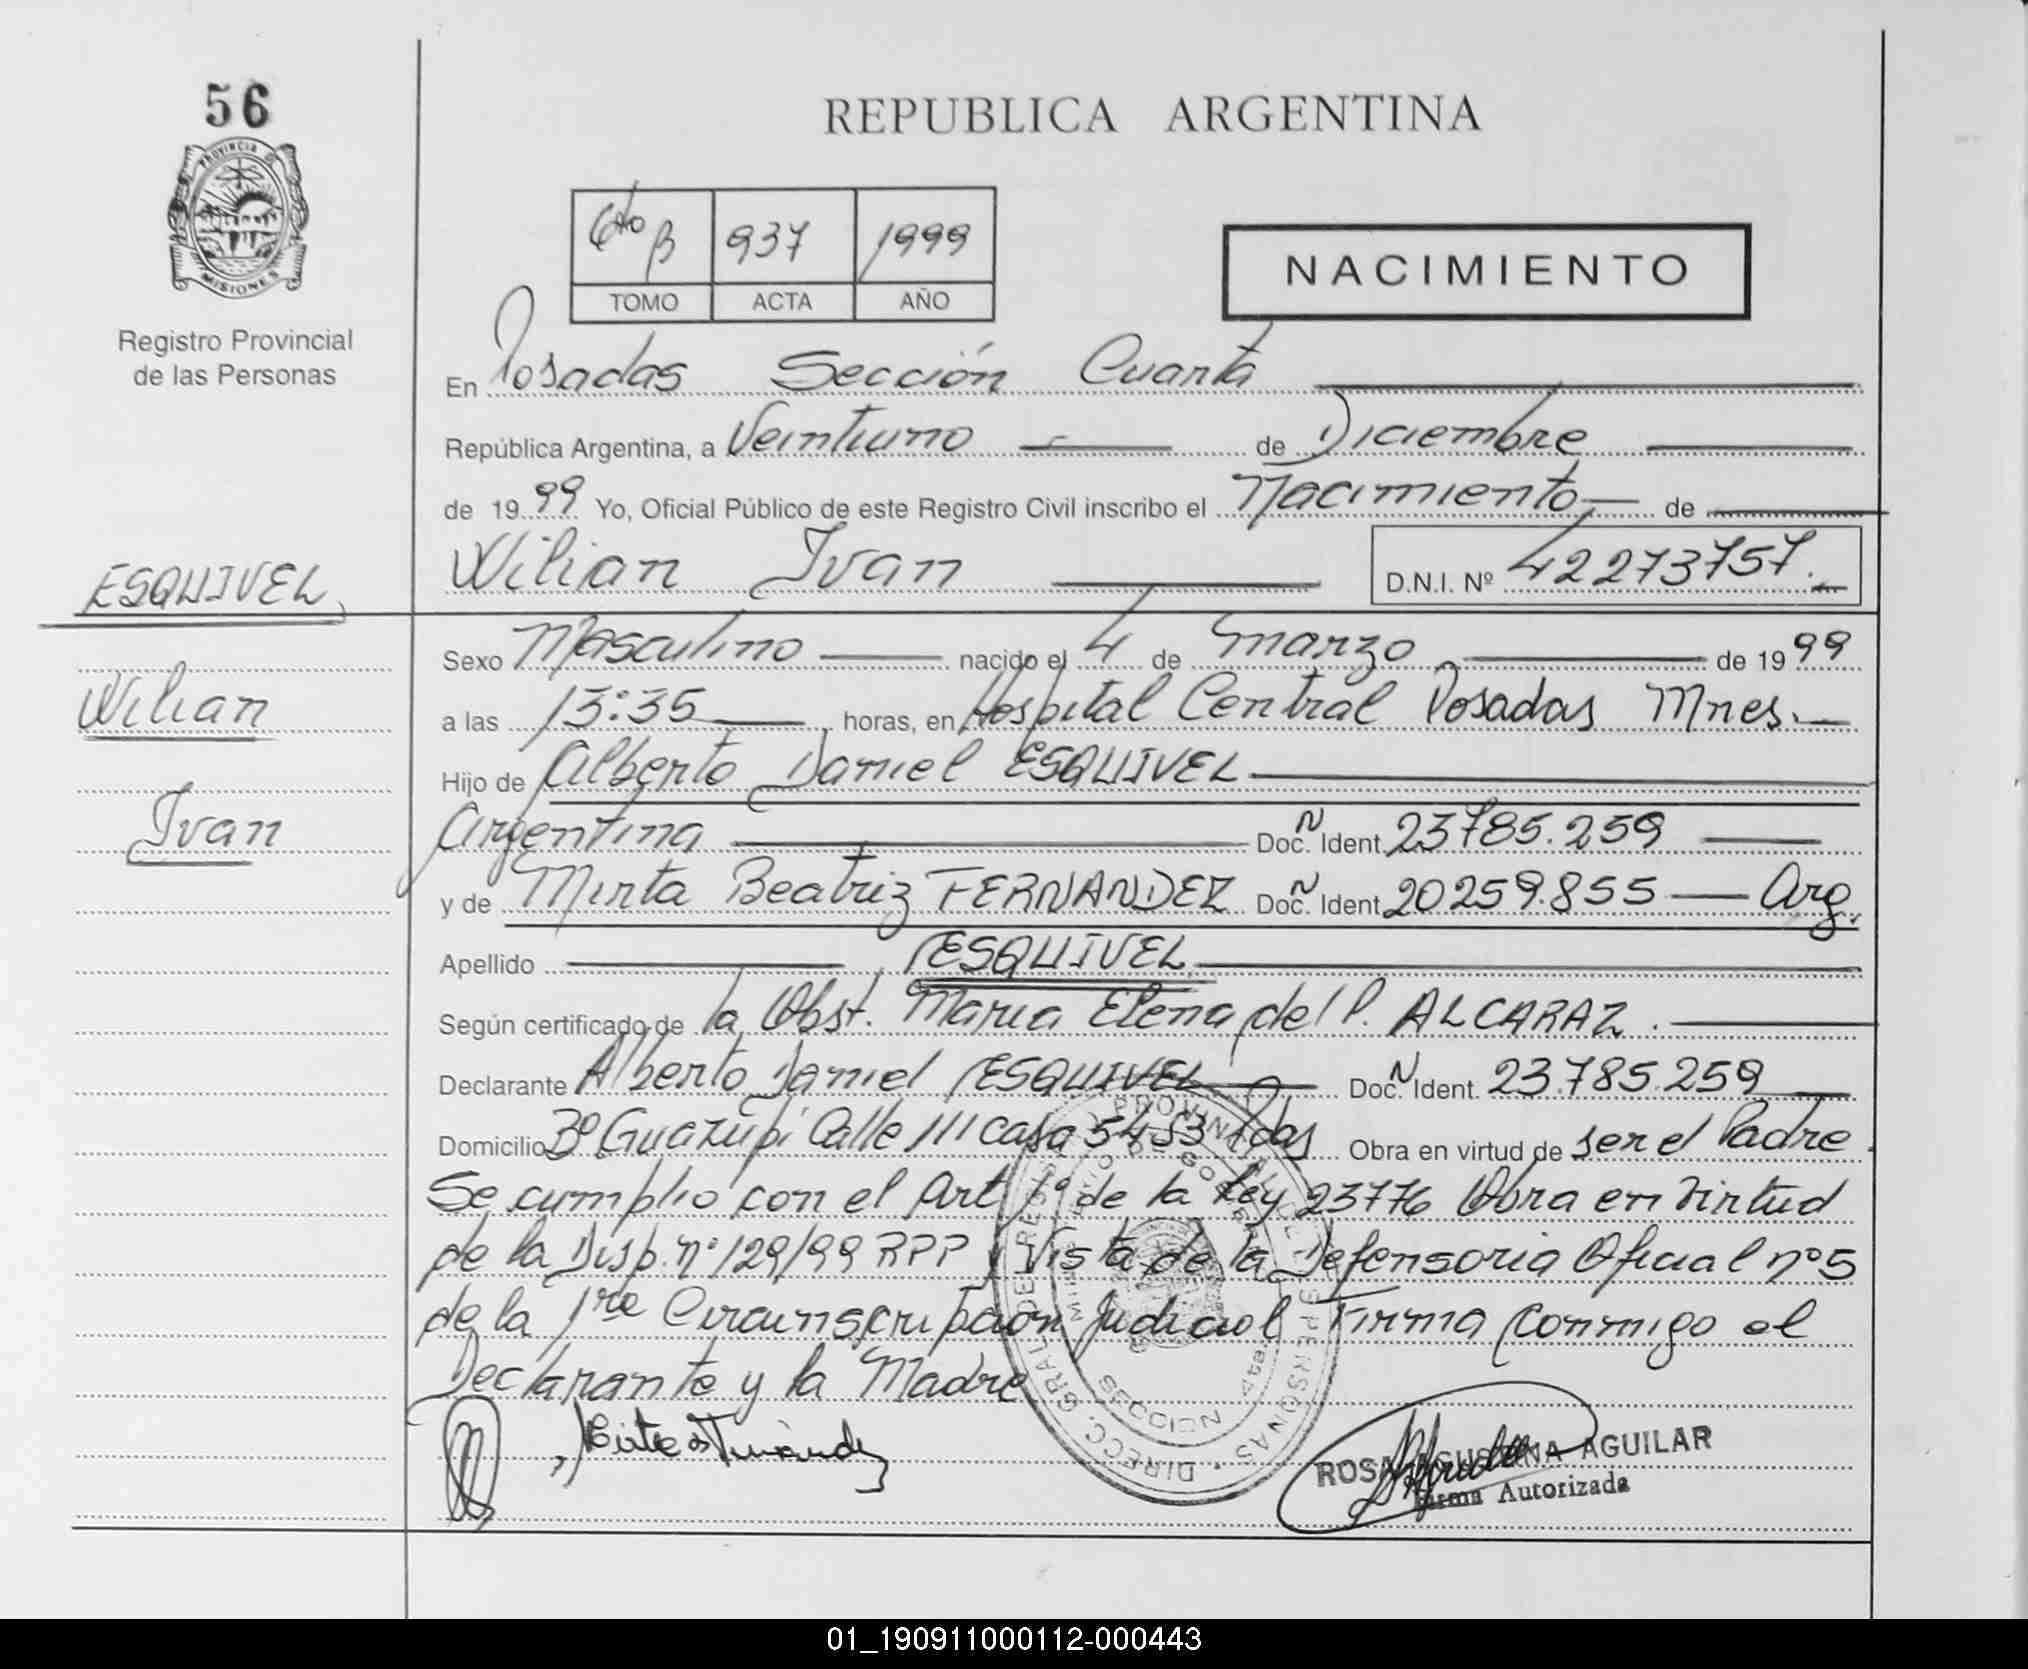 56
PROVINCIA D
MISIONES
Registro Provincial
de las Personas
REPUBLICA ARGENTINA
6to B 937 1999
TOMO ACTA AÑO
NACIMIENTO
En Posadas Sección Cuarta
República Argentina, a Veintiuno de Diciembre
de 1999 Yo, Oficial Público de este Registro Civil inscribo el Nacimiento de
Wilian Ivan D.N.I. Nº 42273757.
ESQUIVEL
Wilian
Ivan
Sexo Masculino nacido el 4 de marzo de 1999
a las 13:35 horas, en Hospital Central Posadas Mnes.
Hijo de Alberto Daniel ESQUIVEL
Argentina Doc. N Ident. 23785.259
y de Mirta Beatriz FERNANDEZ Doc. N Ident. 20259.855 Arg.
Apellido ESQUIVEL
Según certificado de la Obst. Maria Elena del P. ALCARAZ.
Declarante Alberto Daniel ESQUIVEL Doc. N Ident. 23.785.259
Domicilio Bº Guazupi Calle 111 casa 5453 Pdas Obra en virtud de ser el Padre.
Se cumplio con el Art 1º de la Ley 23776 Obra en virtud
de la Disp. nº 129/99 RPP y Vista de la Defensoria Oficial nº5
de la 1ra Circunscripcion Judicial Firma Conmigo el
Declarante y la Madre
DIRECC. GRAL. DE REGIST. PROVINCIAL DE LAS PERSONAS
ROSA AGUSTINA AGUILAR
Firma Autorizada
01_190911000112-000443